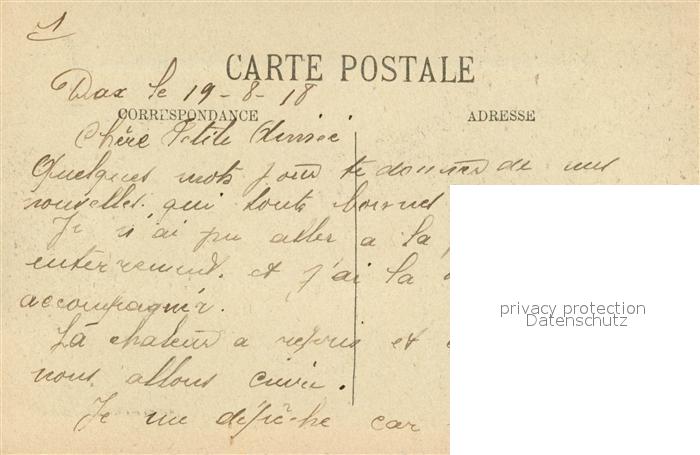 1
CARTE POSTALE
Dax le 19-8-18
CORRESPONDANCE
ADRESSE
Chère Petite
Quelques mots pour te donner de mes
nouvelles. qui sont bonnes
Je n'ai pu aller a la
enterrement. et j'ai la
accompagnir.
La chaleur a repris et
nous allons cuire.
Je me dépêche car
privacy protection
Datenschutz